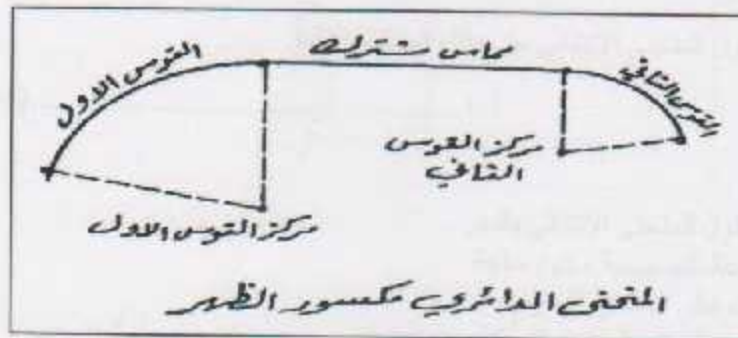 القوس الاول
مماس مشترك
القوس الثاني
مركز القوس
الثاني
مركز القوس الاول
المنحنى الدائري مكسور الظهر